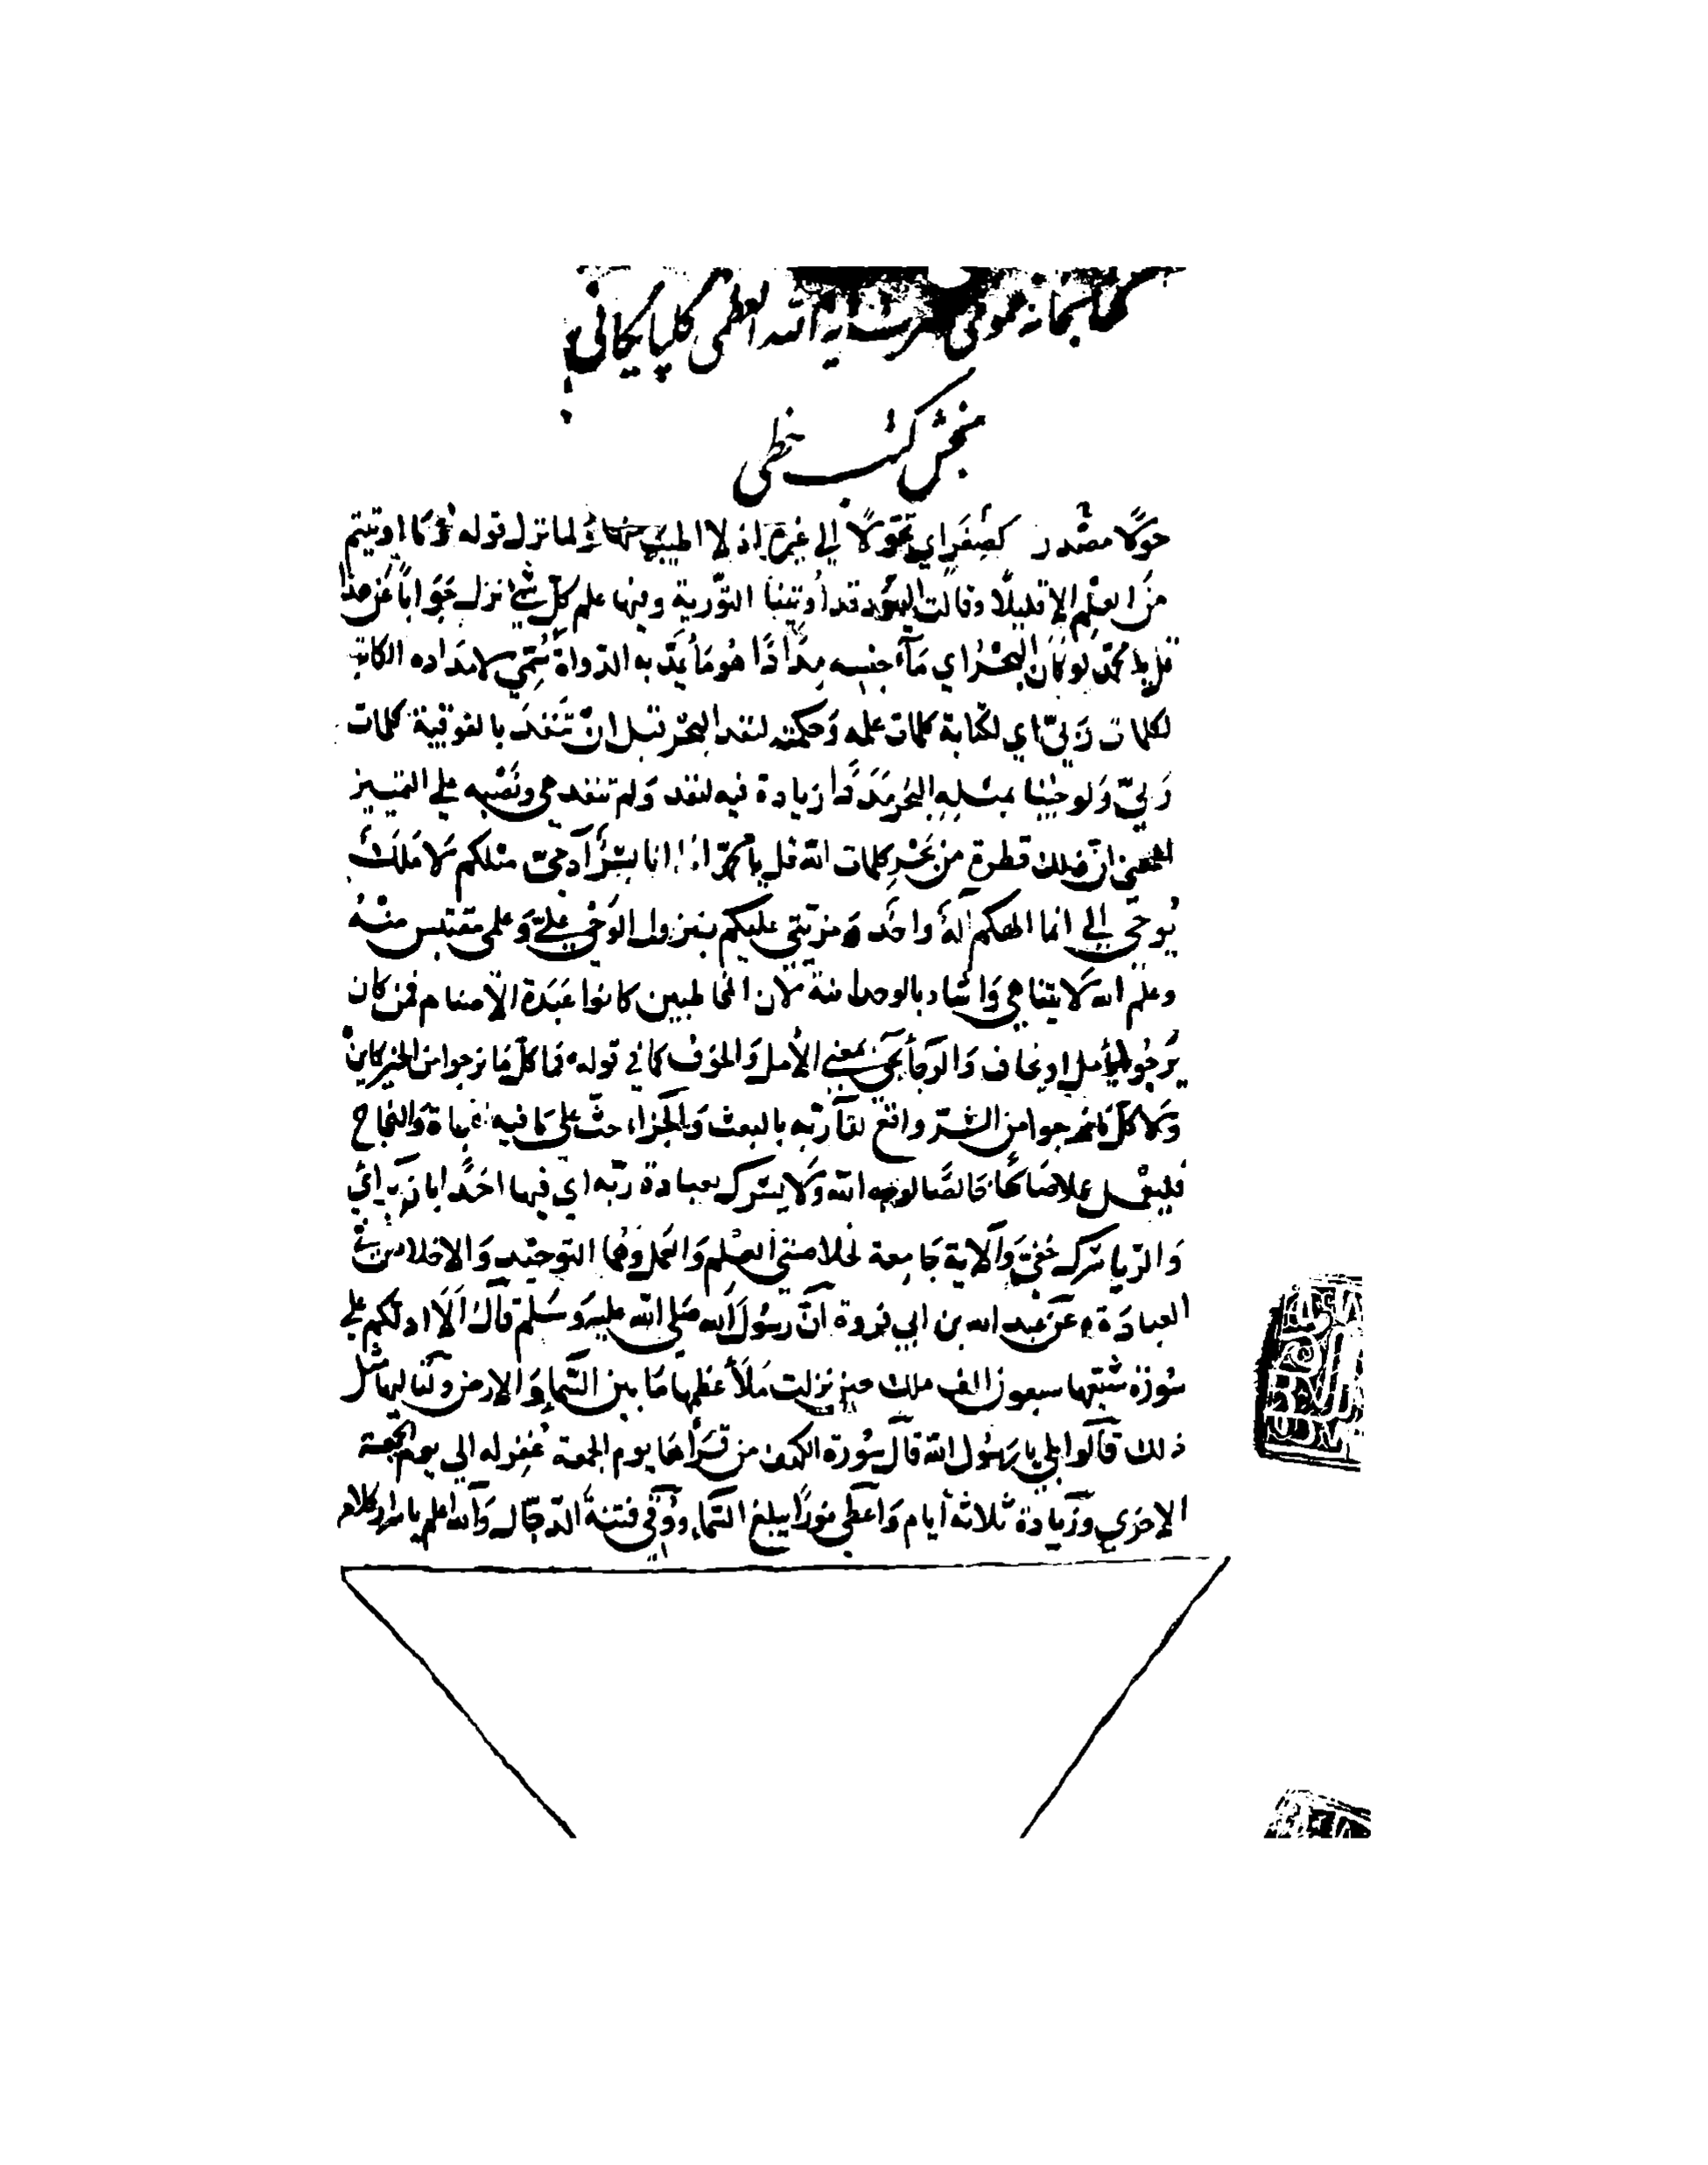 كتابخانه عمومى حضرت آية الله العظمى گلپايگانى
بخش كتب خطى
حوَلًا مصْدر كصِغَر اي تحوّلًا الي غيرها اذ لا اطيب منها ولما نزل قوله وَمَا اوتيتم
مِنَ العِلْمِ الا قليلًا وقالت اليهُود قد اُوتينَا التّوريٰة وفيها علم كلّ شئ نزل جَوَاباً عَن هذا
قل يا محمّد لو كانَ البَحْرُ اي مَآء جنسِه مِدَادًا هُو مَا يُمَدّ به الدّواة سُمّي لامدَاده الكاتب
لكلمات رَبيّ اي لكتابة كلمات علمه وَحكمته لنفد البَحْر قبل انْ تَنفدَ بالفوقية كلمات
رَبيّ وَلو جئنا بمثلِه البَحر مَدَدًا زيادة فيه لنفد وَلم تنفد هي ونَصْبه علي التمييز
المعني انّ ذلك قطرة من بَحْرِ كلمات الله قل يا محمّد انما انا بشَرٌ آدميّ مثلكم لَا مَلَك
يُوحَى اليّ انما الهكم اِلهٌ واحَد ومزيّتي عليكم بنزول الوَحْي عليّ وَعلمي مقتبس منْهُ
وعلم الله لَا يتناهي وَاشاد بالوحدانية لان المخاطبين كانوا عَبَدَة الاصنام فمن كان
يَرجُوا يأمل او يخاف وَالرَجَأ يجئ بمعني الأمل وَالخوف كما في قوله فمَا كلّ مَا نرجوا من الخير كاين
وَلا كلّ مَا نرجوا من الشّر واقع لقآ رَبّه بالبعث وَالجزاء حثّ علي مَا فيه نجاة وَالنجاح
فليعْمل عملا صَالحًا خَالصًا لوجه الله وَلا يشرك بعبادة ربّه اي فيها احَدًا بان يرائي
وَالرّيا شرك خفيّ وَالاية جَامِعة لخلاصتي العِلم وَالعمل وهُما التوحيد وَالاخلاص في
العبادَة عَن عبد الله بن ابي فروة انَّ رسُول اللّه صَلي الله عليه وَسَلم قال اَلَا ادلكم علي
سُورَة شيّعها سبعون الف ملك حين نزلت مَلَأ عظمها مَا بين السّمَا وَالارض وَلتاليها مثل
ذلك قالوا بلي يا رَسُول الله قال سُورة الكهف من قرَأها يوم الجمعة غفر له الي يوم الجمعة
الاخري وَزيَادة ثلاثة أيام وَاعطي نورًا يبلغ السّماء ووُقي فتنة الدّجّال وَالله اعلم باسرار كلامه